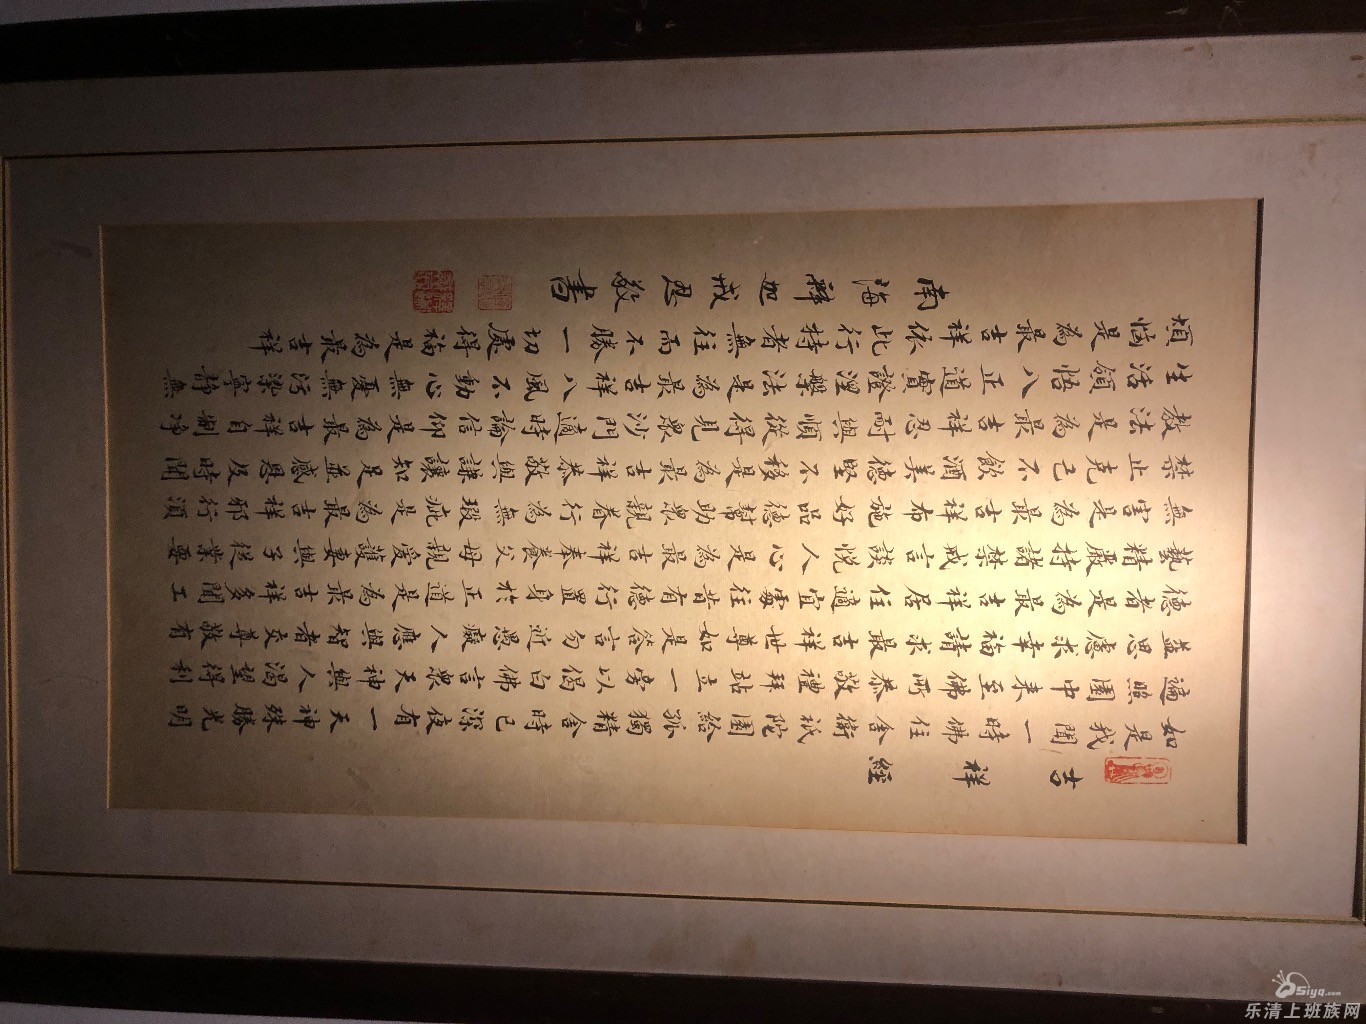 吉祥經
如是我聞一時佛住舍衛祇陀園給孤獨精舍時已深夜有一天神殊勝光明
遍照園中來至佛所恭敬禮拜站立一旁以偈白佛言眾天神與人渴望得利
益思慮求幸福請求最吉祥世尊如是答言勿近愚癡人應與智者交尊敬有
德者是為最吉祥居住適宜處往昔有德行置身於正道是為最吉祥多聞工
藝精嚴持諸禁戒言談悅人心是為最吉祥奉養父母親愛護妻與子從業要
無害是為最吉祥布施好品德幫助眾親眷行為無瑕疵是為最吉祥邪行須
禁止克己不飲酒美德堅不移是為最吉祥恭敬與謙讓知足並感恩及時聞
教法是為最吉祥忍耐與順從得見眾沙門適時論信仰是為最吉祥自制淨
生活領悟八正道實證涅槃法是為最吉祥八風不動心無憂無污染寧靜無
煩惱是為最吉祥依此行持者無往而不勝一切處得福是為最吉祥
南海釋迦戒恩敬書
乐清上班族网